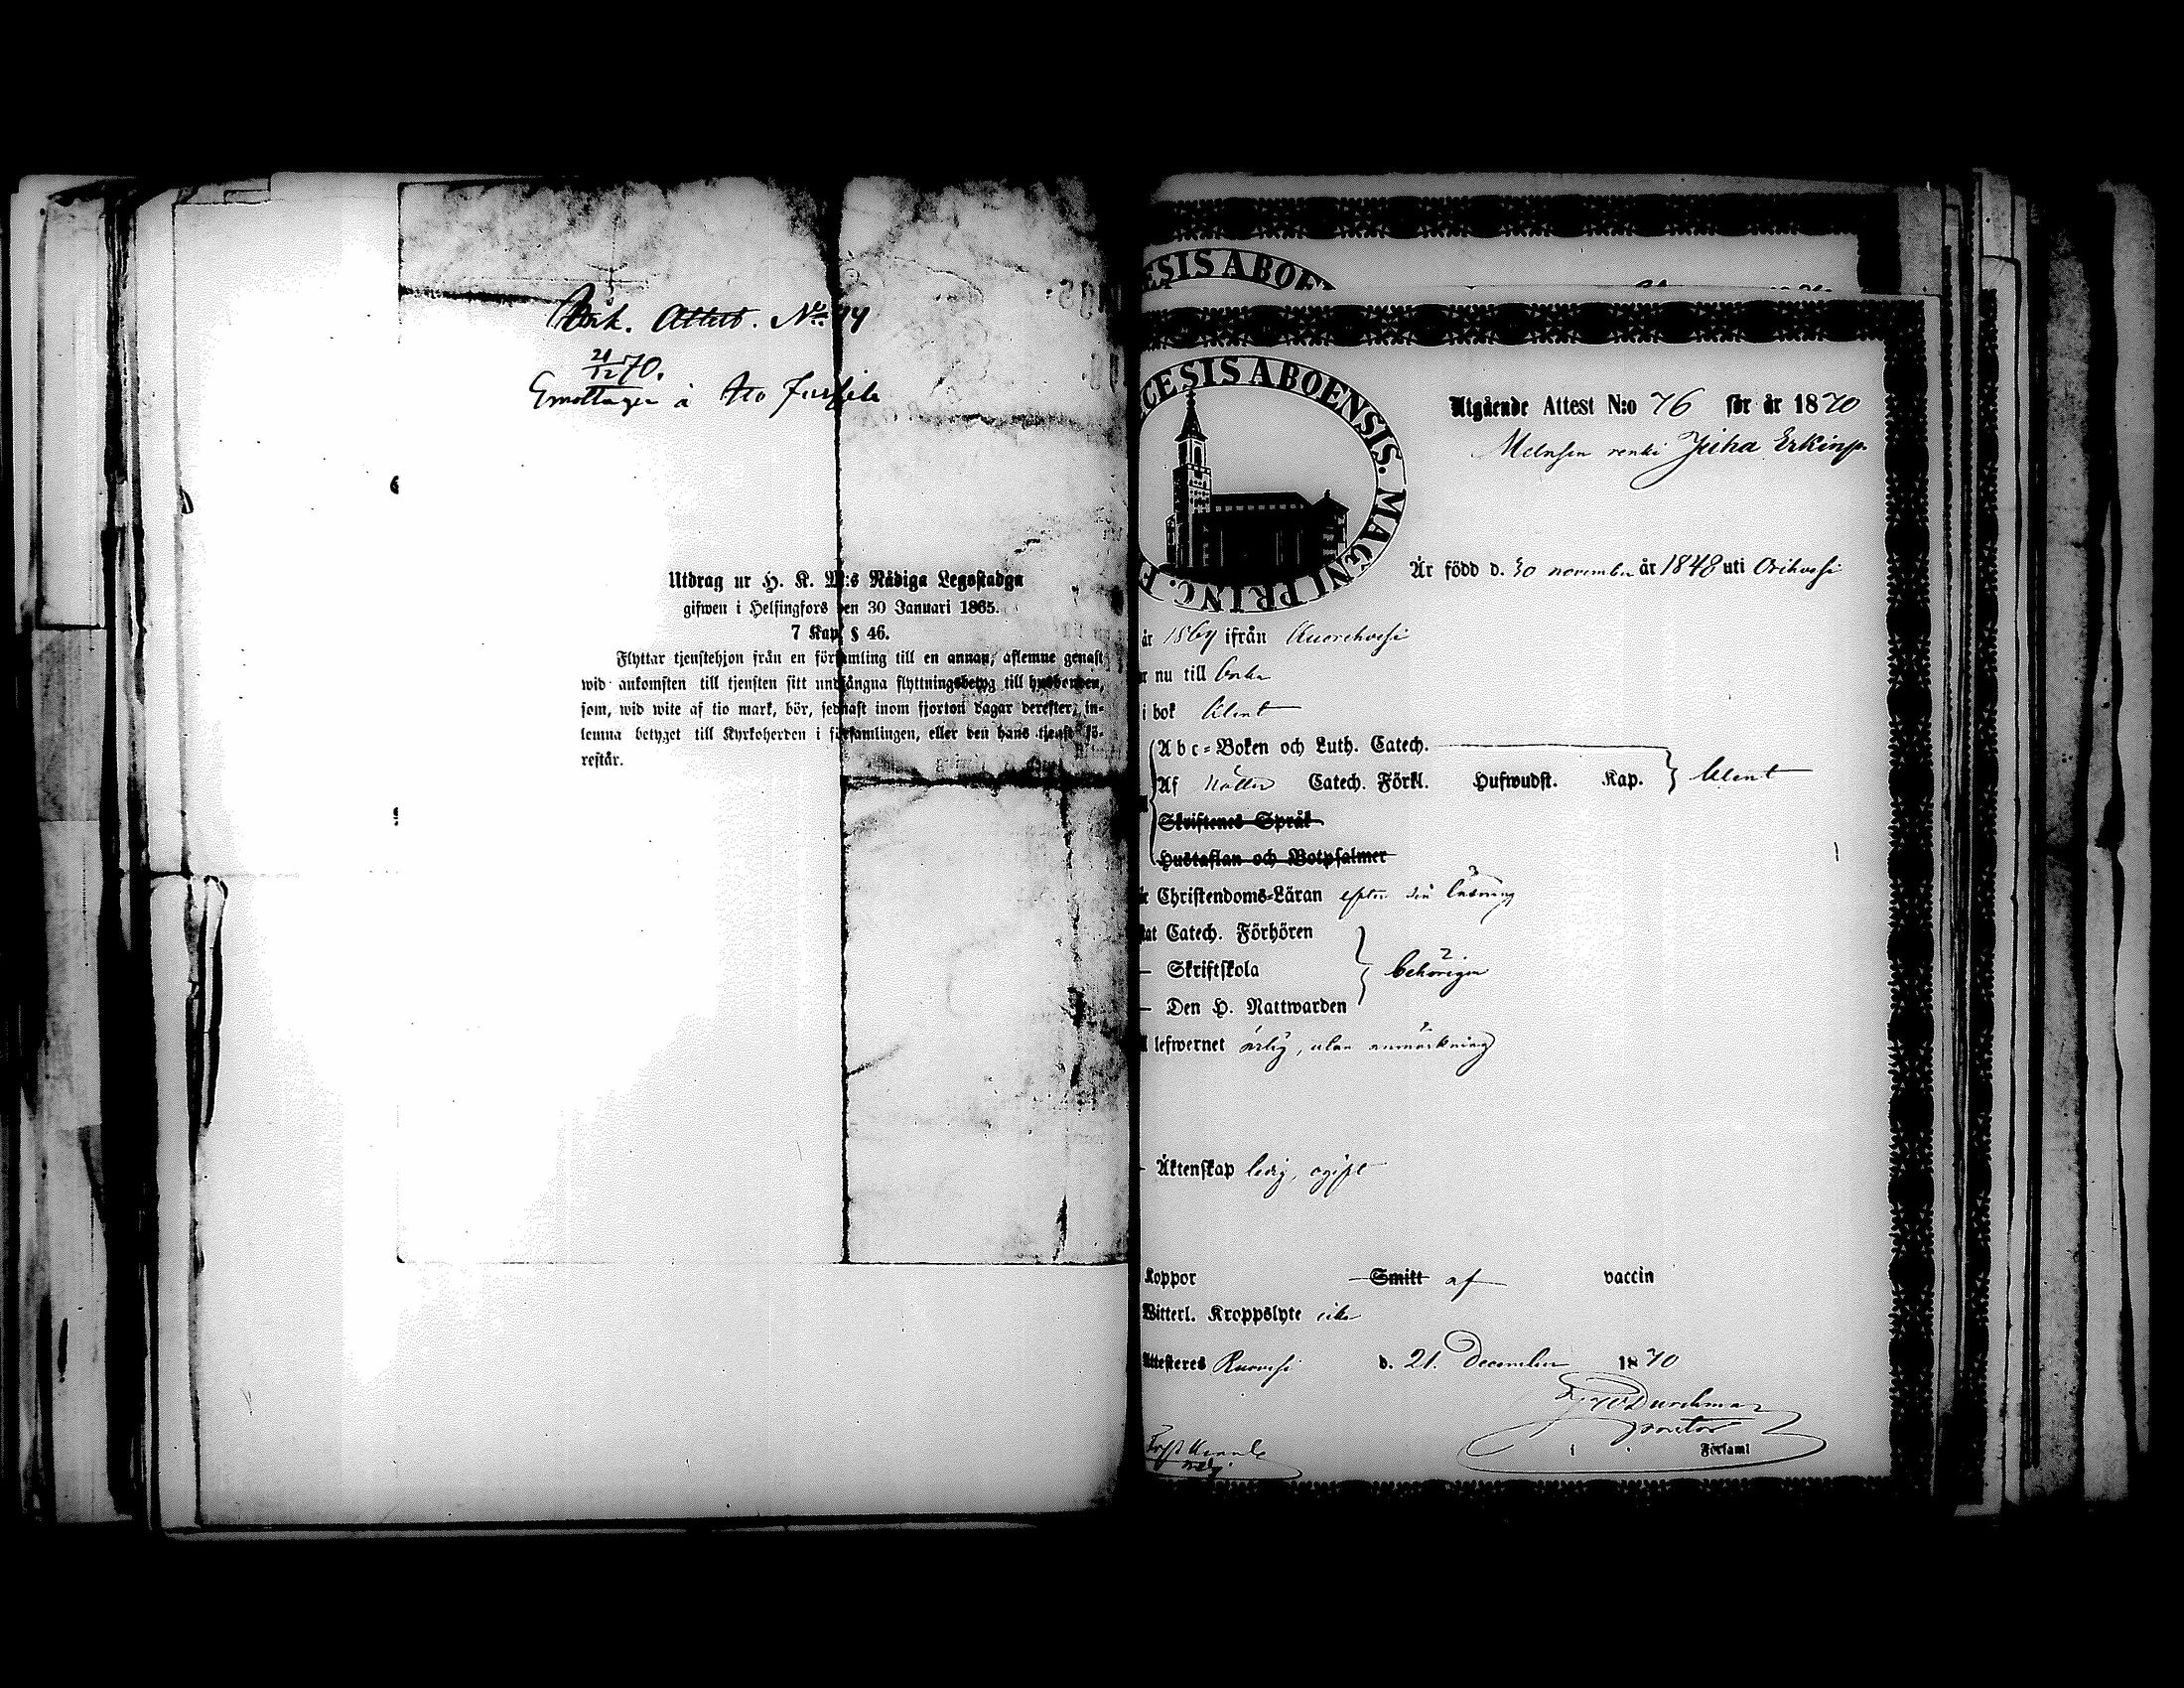 Attest. No
21/12 70.
Emottagen
Utdrag ur H. K. M:s Nådiga Legostadga
gifwen i Helsingfors den 30 Januari 1865.
7 Kap. § 46.
Flyttar tjenstehjon från en församling till en annan, aflemne genast
wid ankomsten till tjensten sitt undfångna flyttningsbetyg till husbonden,
som, wid wite af tio mark, bör, sednast inom fjorton dagar derefter, in-
lemna betyget till Kyrkoherden i församlingen, eller den hans tjenst fö-
restår.
ESIS ABOE
CESIS ABOENSIS. MAGNI PRINC. F
Utgående Attest N:o 76 för år 1870
renki Juha Erkinp.
Är född d. 30 november år 1848 uti Orihvesi
år 1869 ifrån Kuorehvesi
nu till
i bok
Abc-Boken och Luth. Catech.
Af nöden Catech. Förkl. Hufwudst. Kap.
Skriftenes Språk
Hustaflan och Botpsalmer
Christendoms-Läran efter sin läsning
at Catech. Förhören
— Skriftskola behörigen
— Den H. Nattwarden
lefwernet ärlig, utan anmärkning
— Äktenskap ledig, ogift
Koppor Smitt af vaccin
Witterl. Kroppslyte icke
Attesteres Ruovesi d. 21. December 1870
Durchman
i Församl